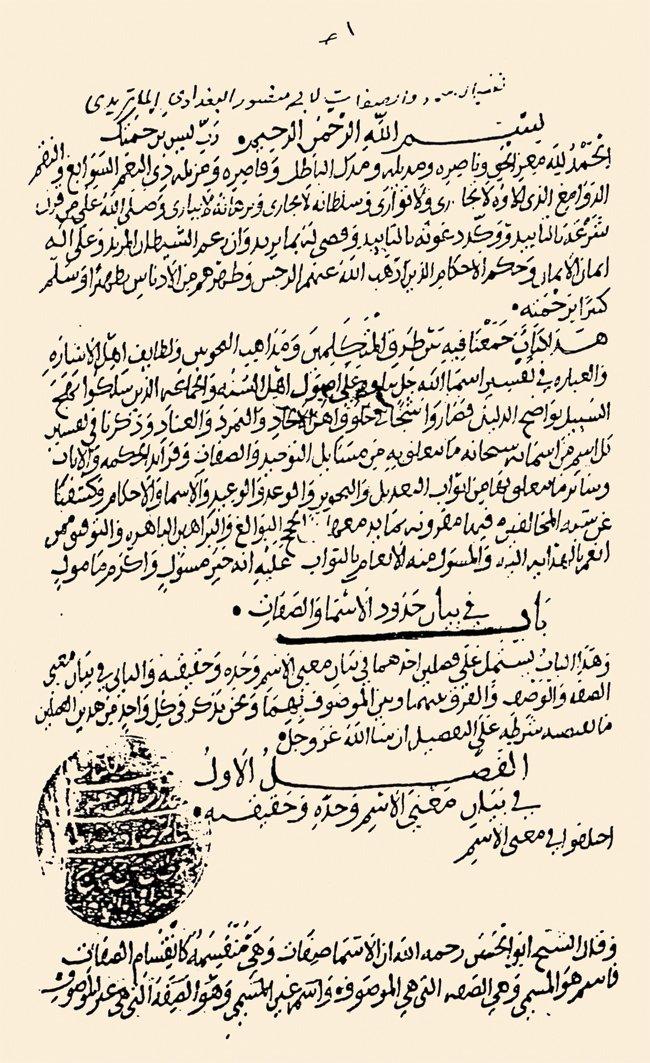 ١
تفسير الاسماء والصفات لابى منصور البغدادى الماتريدى
بسم الله الرحمن الرحيم رب يسر برحمتك
الحمد لله معز الحق وناصره ومديله ومذل الباطل وقاصره ومزيله ذى النعم السوابغ والنقم
الدوامغ الذى لا تجارى ولا توارى وسلطانه لا يجارى وبرهانه لا يبارى وصلى الله على من قرن
شرعه بالتاييد ووكد دعوته بالتابيد وقضى له بما يريد وان رغم الشيطان المريد وعلى اله
الايمان وحكم الاحكام الذين اذهب الله عنهم الرجس وطهرهم من الادناس تطهيرا وسلم
كثيرا برحمته
هذا كتاب جمعنا فيه بين طرق المتكلمين ومذاهب النحويين ولطايف اهل الاشاره
والعباره فى تفسير اسما الله جل على اصول اهل السنه والجماعه الذين سلكوا نهج
السبيل بواضح الدليل فصاروا فى حلوق اهل الالحاد والتمرد والعناد وذكرنا فى تفسير
كل اسم من اسمائه سبحانه ما يتعلق به من مسايل التوحيد والصفات وفرايد الحكمه والاداب
وساير ما يتعلق بها من ابواب التعديل والتجوير والوعد والوعيد والاسما والاحكام وكشفنا
عن شبه المخالفين فيها مقرونه بما يدمغها الحجج البوالغ والبراهين الباهره والتوفيق ممن
انعم بالهدايه اليه والمسول منه الانعام بالثواب عليه انه خير مسول واكرم مامول
باب فى بيان حدود الاسما والصفات
وهذا الباب يشتمل على فصلين احدهما فى بيان معنى الاسم وحده وحقيقته والثانى فى بيان معنى
الصفه والوصف والفرق بينهما وبين الموصوف بهما ونحن نذكر فى كل واحد من هذين الفصلين
ما يقتضيه شرطه على التفصيل ان شا الله عز وجل
الفصل الاول
فى بيان معنى الاسم وحده وحقيقته
اختلفوا فى معنى الاسم
وقال الشيخ ابو الحسن رحمه الله ان الاسما صفات وهى منقسمه كانقسام الصفات
فاسم هو المسمى وهى الصفه التى هى الموصوف واسم غير المسمى وهو الصفه التى هى غير الموصوف